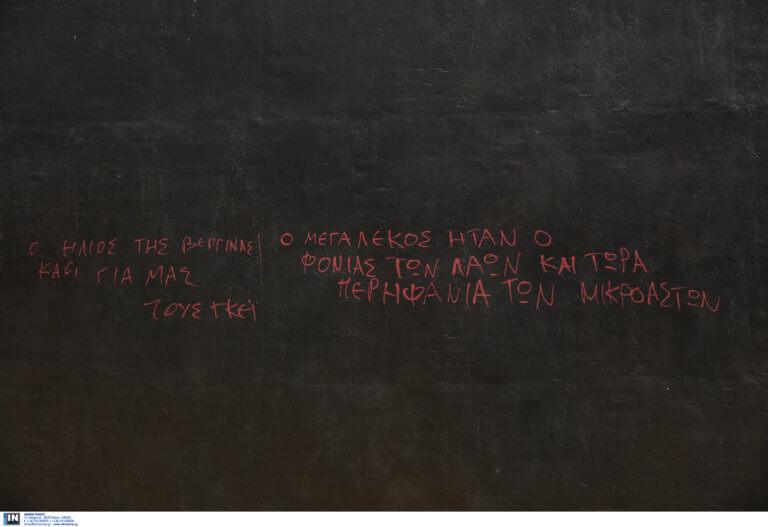 Ο ΗΛΙΟΣ ΤΗΣ ΒΕΡΓΙΝΑΣ
ΚΑΙ ΓΙΑ ΜΑΣ
ΤΟΥΣ ΓΚΕΪ
Ο ΜΕΓΑΛΕΚΟΣ ΗΤΑΝ Ο
ΦΟΝΙΑΣ ΤΩΝ ΛΑΩΝ ΚΑΙ ΤΩΡΑ
ΠΕΡΗΦΑΝΙΑ ΤΩΝ ΜΙΚΡΟΑΣΤΩΝ
IN